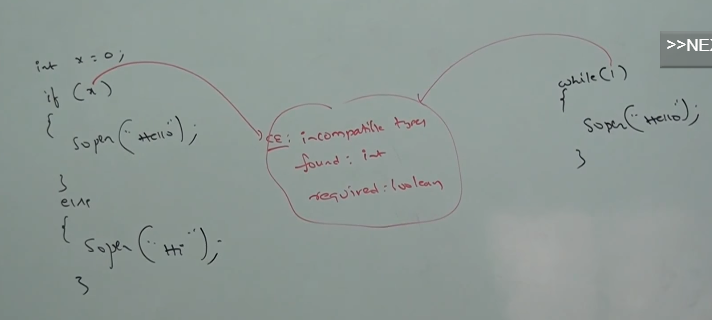 int x = 0;
if (x)
{
Sopln("Hello");
}
else
{
Sopln("Hi");
}
CE: incompatible types
found: int
required: boolean
while(1)
{
Sopln("Hello");
}
>>NEX